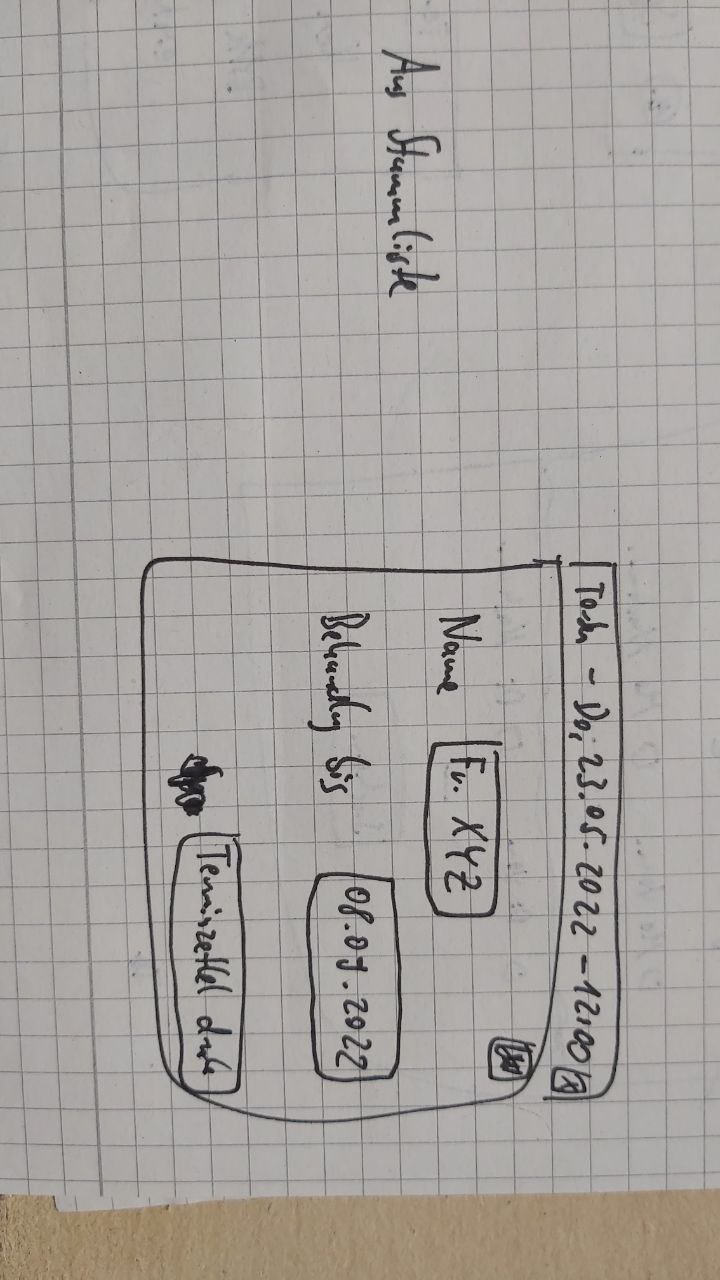 Aus Stammliste
- Do, 23.05.2022 - 12:00 x
Name Fr. XYZ
Behandlg bis 08.07.2022
Terminzettel